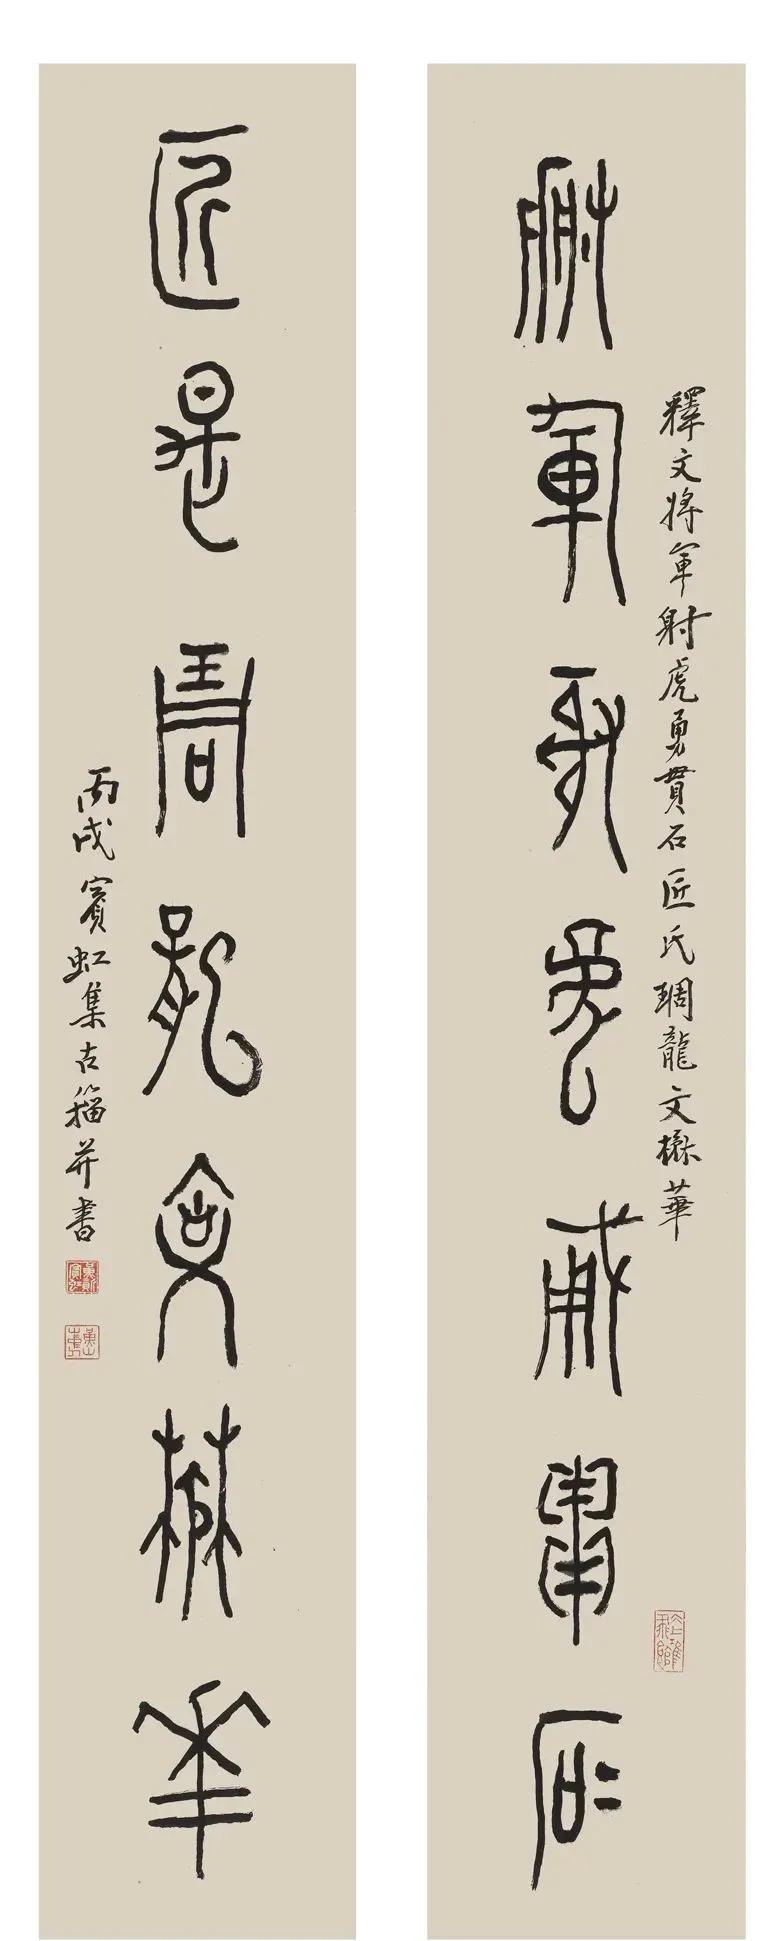 釋文將軍射虎勇貫石匠氏琱龍文楙華
將軍射虎勇貫石
匠氏琱龍文楙華
丙戌賓虹集古籀并書